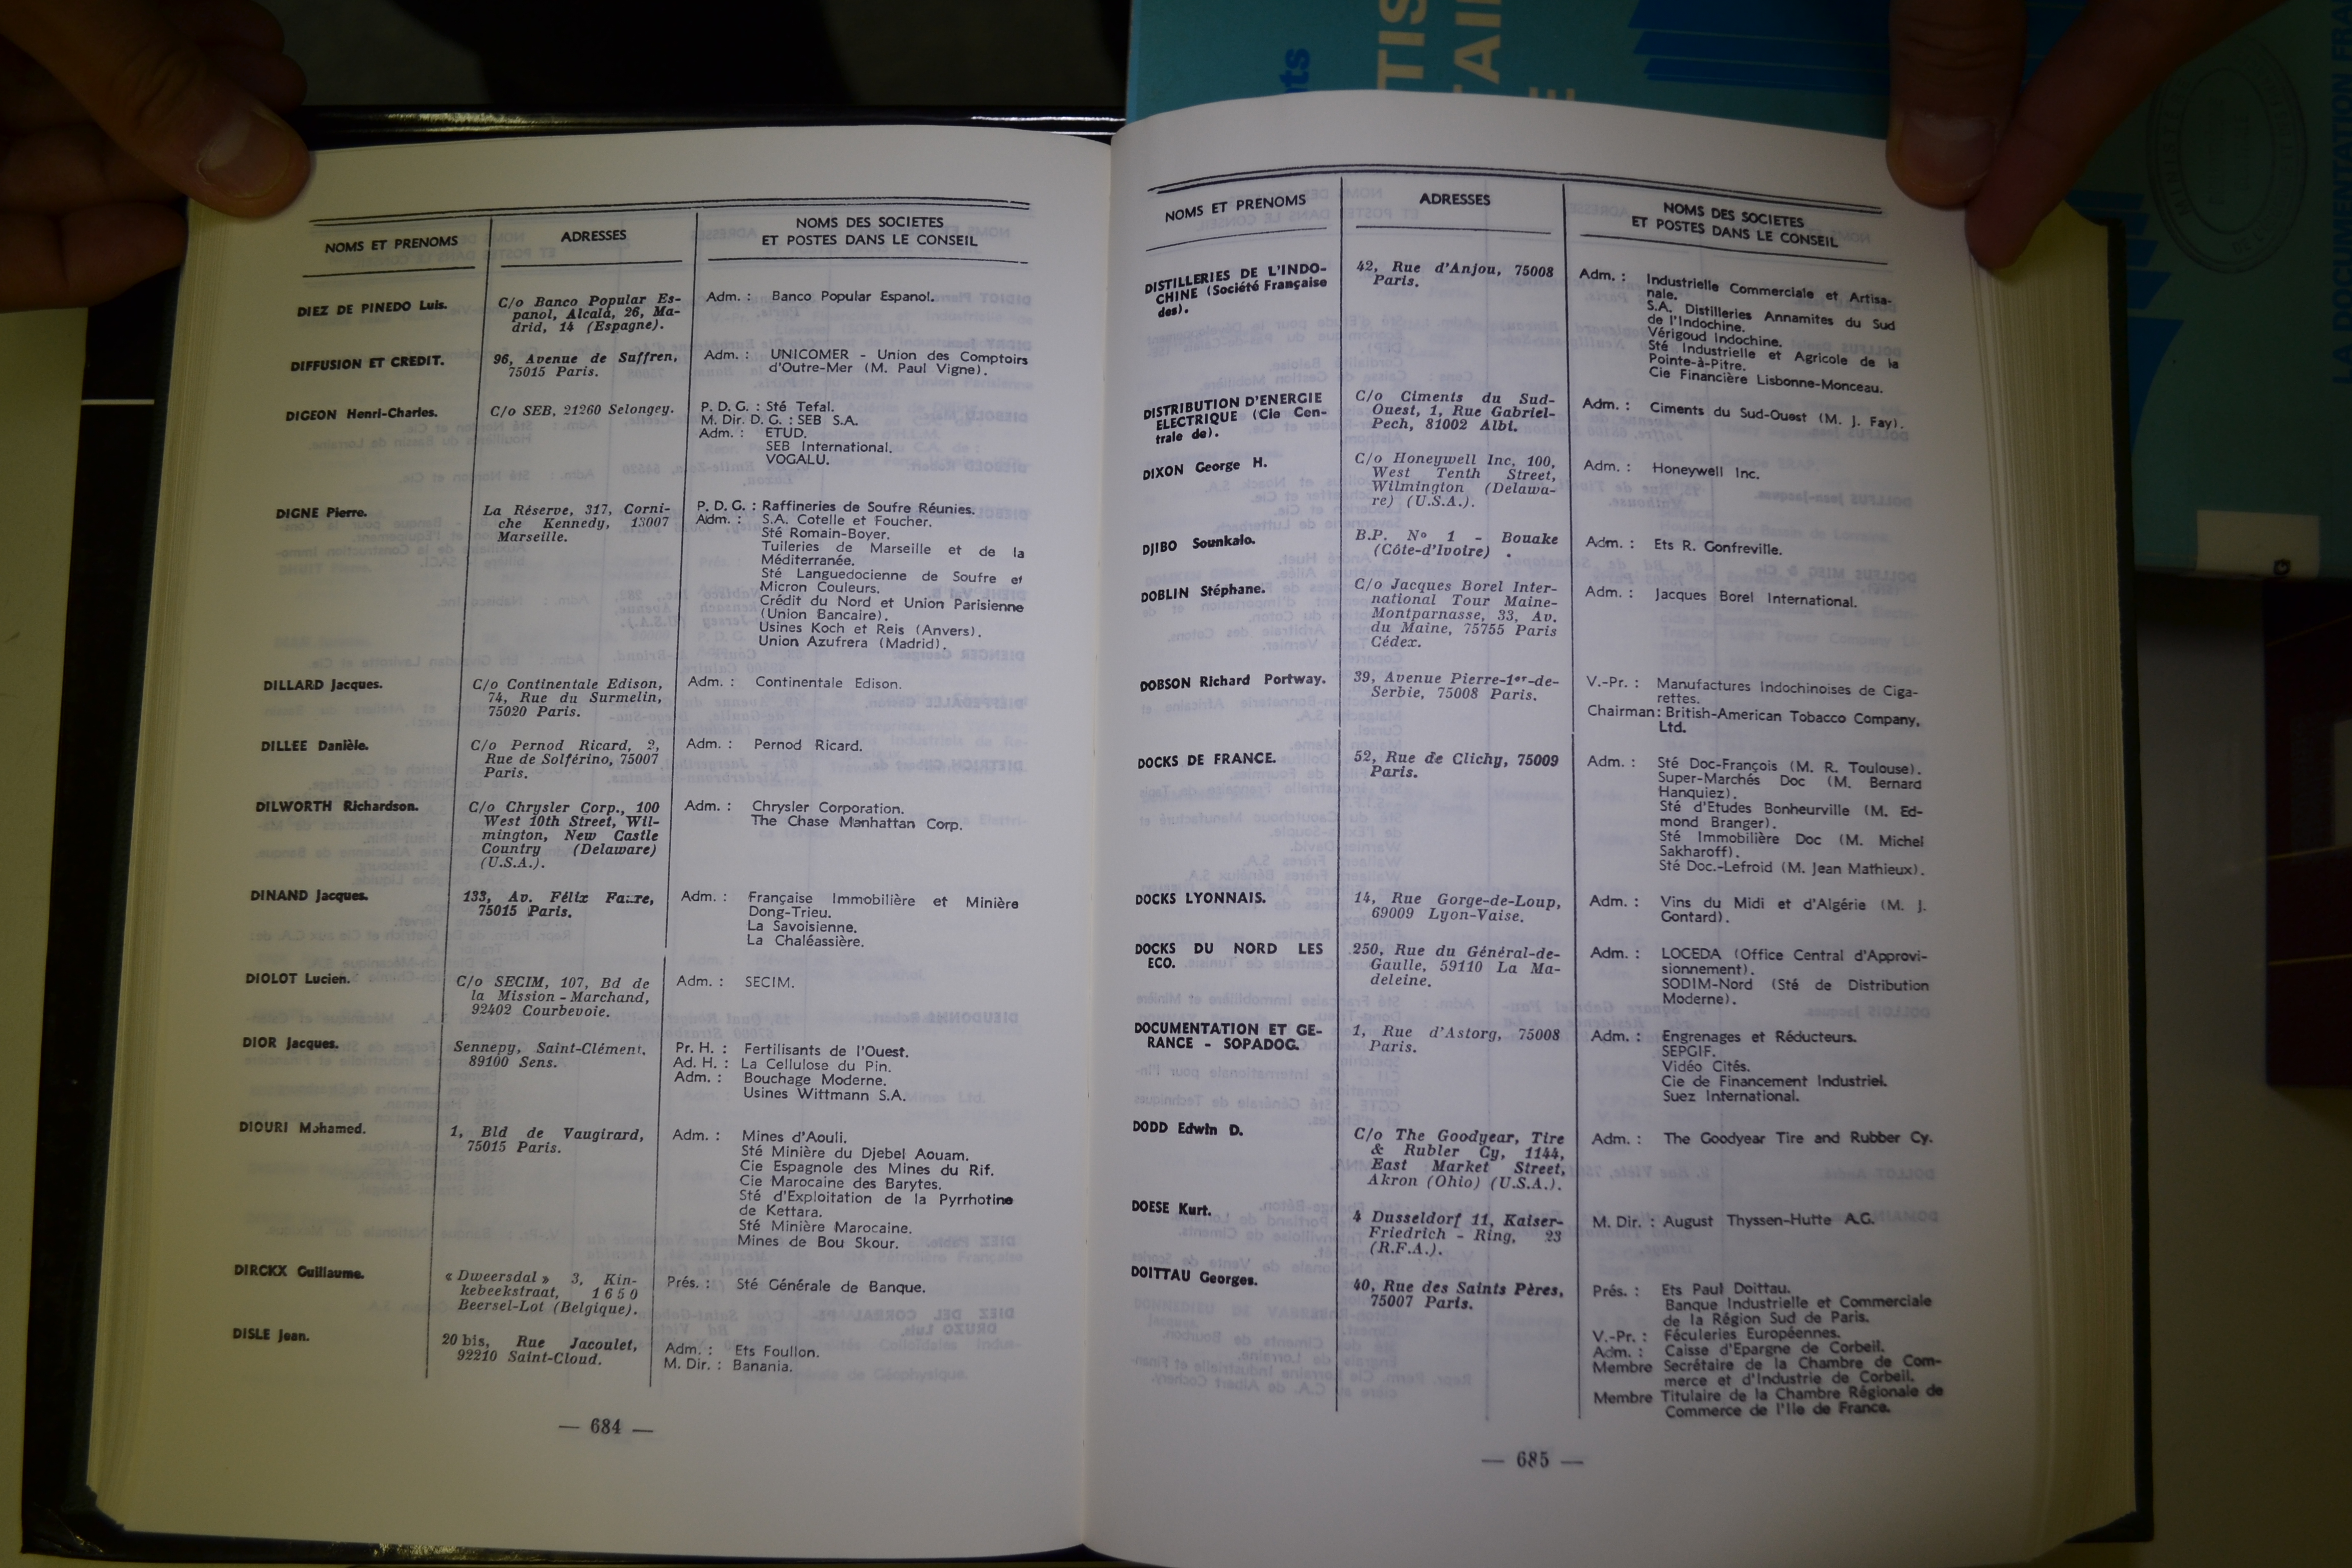 NOMS ET PRENOMS
ADRESSES
NOMS DES SOCIETES
ET POSTES DANS LE CONSEIL
DIEZ DE PINEDO Luis.
C/o Banco Popular Es-
panol, Alcalá, 26, Ma-
drid, 14 (Espagne).
Adm. : Banco Popular Espanol.
DIFFUSION ET CREDIT.
96, Avenue de Suffren,
75015 Paris.
Adm. : UNICOMER - Union des Comptoirs
d'Outre-Mer (M. Paul Vigne).
DIGEON Henri-Charles.
C/o SEB, 21260 Selongey.
P. D. G. : Sté Tefal.
M. Dir. D. G. : SEB S.A.
Adm. : ETUD.
SEB International.
VOGALU.
DIGNE Pierre.
La Réserve, 317, Corni-
che Kennedy, 13007
Marseille.
P. D. G. : Raffineries de Soufre Réunies.
Adm. : S.A. Cotelle et Foucher.
Sté Romain-Boyer.
Tuileries de Marseille et de la
Méditerranée.
Sté Languedocienne de Soufre et
Micron Couleurs.
Crédit du Nord et Union Parisienne
(Union Bancaire).
Usines Koch et Reis (Anvers).
Union Azufrera (Madrid).
DILLARD Jacques.
C/o Continentale Edison,
74, Rue du Surmelin,
75020 Paris.
Adm. : Continentale Edison.
DILLEE Danièle.
C/o Pernod Ricard, 2,
Rue de Solférino, 75007
Paris.
Adm. : Pernod Ricard.
DILWORTH Richardson.
C/o Chrysler Corp., 100
West 10th Street, Wil-
mington, New Castle
Country (Delaware)
(U.S.A.).
Adm. : Chrysler Corporation.
The Chase Manhattan Corp.
DINAND Jacques.
133, Av. Félix Faure,
75015 Paris.
Adm. : Française Immobilière et Minière
Dong-Trieu.
La Savoisienne.
La Chaléassière.
DIOLOT Lucien.
C/o SECIM, 107, Bd de
la Mission - Marchand,
92402 Courbevoie.
Adm. : SECIM.
DIOR Jacques.
Sennepy, Saint-Clément,
89100 Sens.
Pr. H. : Fertilisants de l'Ouest.
Ad. H. : La Cellulose du Pin.
Adm. : Bouchage Moderne.
Usines Wittmann S.A.
DIOURI Mohamed.
1, Bld de Vaugirard,
75015 Paris.
Adm. : Mines d'Aouli.
Sté Minière du Djebel Aouam.
Cie Espagnole des Mines du Rif.
Cie Marocaine des Barytes.
Sté d'Exploitation de la Pyrrhotine
de Kettara.
Sté Minière Marocaine.
Mines de Bou Skour.
DIRCKX Guillaume.
« Dweersdal » 3, Kin-
kebeekstraat, 1650
Beersel-Lot (Belgique).
Prés. : Sté Générale de Banque.
DISLE Jean.
20 bis, Rue Jacoulet,
92210 Saint-Cloud.
Adm. : Ets Foullon.
M. Dir. : Banania.
— 684 —
NOMS ET PRENOMS
ADRESSES
NOMS DES SOCIETES
ET POSTES DANS LE CONSEIL
DISTILLERIES DE L'INDO-
CHINE (Société Française
des).
42, Rue d'Anjou, 75008
Paris.
Adm. : Industrielle Commerciale et Artisa-
nale.
S.A. Distilleries Annamites du Sud
de l'Indochine.
Vérigoud Indochine.
Sté Industrielle et Agricole de la
Pointe-à-Pitre.
Cie Financière Lisbonne-Monceau.
DISTRIBUTION D'ENERGIE
ELECTRIQUE (Cie Cen-
trale de).
C/o Ciments du Sud-
Ouest, 1, Rue Gabriel-
Pech, 81002 Albi.
Adm. : Ciments du Sud-Ouest (M. J. Fay).
DIXON George H.
C/o Honeywell Inc, 100,
West Tenth Street,
Wilmington (Delawa-
re) (U.S.A.).
Adm. : Honeywell Inc.
DJIBO Sounkalo.
B.P. N° 1 - Bouake
(Côte-d'Ivoire) .
Adm. : Ets R. Gonfreville.
DOBLIN Stéphane.
C/o Jacques Borel Inter-
national Tour Maine-
Montparnasse, 33, Av.
du Maine, 75755 Paris
Cédex.
Adm. : Jacques Borel International.
DOBSON Richard Portway.
39, Avenue Pierre-1er-de-
Serbie, 75008 Paris.
V.-Pr. : Manufactures Indochinoises de Ciga-
rettes.
Chairman : British-American Tobacco Company,
Ltd.
DOCKS DE FRANCE.
52, Rue de Clichy, 75009
Paris.
Adm. : Sté Doc-François (M. R. Toulouse).
Super-Marchés Doc (M. Bernard
Hanquiez).
Sté d'Etudes Bonheurville (M. Ed-
mond Branger).
Sté Immobilière Doc (M. Michel
Sakharoff).
Sté Doc.-Lefroid (M. Jean Mathieux).
DOCKS LYONNAIS.
14, Rue Gorge-de-Loup,
69009 Lyon-Vaise.
Adm. : Vins du Midi et d'Algérie (M. J.
Gontard).
DOCKS DU NORD LES
ECO.
250, Rue du Général-de-
Gaulle, 59110 La Ma-
deleine.
Adm. : LOCEDA (Office Central d'Approvi-
sionnement).
SODIM-Nord (Sté de Distribution
Moderne).
DOCUMENTATION ET GE-
RANCE - SOPADOG.
1, Rue d'Astorg, 75008
Paris.
Adm. : Engrenages et Réducteurs.
SEPGIF.
Vidéo Cités.
Cie de Financement Industriel.
Suez International.
DODD Edwin D.
C/o The Goodyear, Tire
& Rubler Cy, 1144,
East Market Street,
Akron (Ohio) (U.S.A.).
Adm. : The Goodyear Tire and Rubber Cy.
DOESE Kurt.
4 Dusseldorf 11, Kaiser-
Friedrich - Ring, 23
(R.F.A.).
M. Dir. : August Thyssen-Hutte A.G.
DOITTAU Georges.
40, Rue des Saints Pères,
75007 Paris.
Prés. : Ets Paul Doittau.
Banque Industrielle et Commerciale
de la Région Sud de Paris.
V.-Pr. : Féculeries Européennes.
Adm. : Caisse d'Epargne de Corbeil.
Membre Secrétaire de la Chambre de Com-
merce et d'Industrie de Corbeil.
Membre Titulaire de la Chambre Régionale de
Commerce de l'Ile de France.
— 685 —